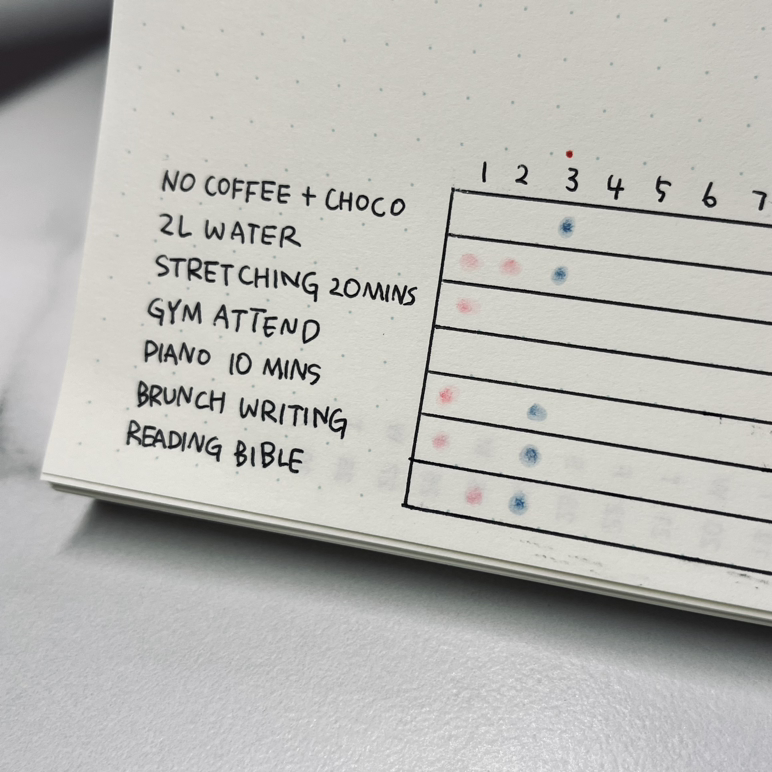 1 2 3 4 5 6 7
NO COFFEE + CHOCO
2L WATER
STRETCHING 20MINS
GYM ATTEND
PIANO 10 MINS
BRUNCH WRITING
READING BIBLE